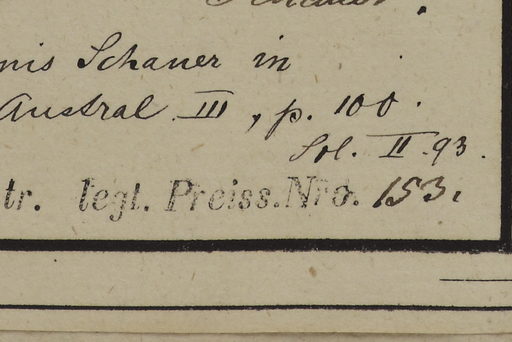 Schauer.
nis Schauer in
Austral. III, p. 100.
Sol. II. 93.
tr. legt. Preiss. Nro. 153.